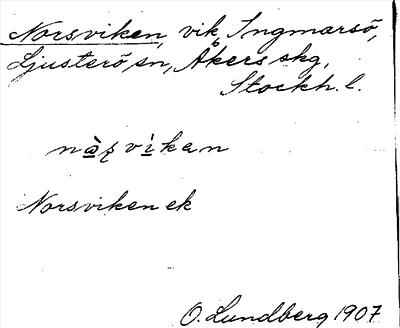 Norsviken, vik, Ingmarsö,
Ljusterö sn, Åkers skg,
Stockh. l.
nàʂvìkan
Norsviken ek
O. Lundberg 1907